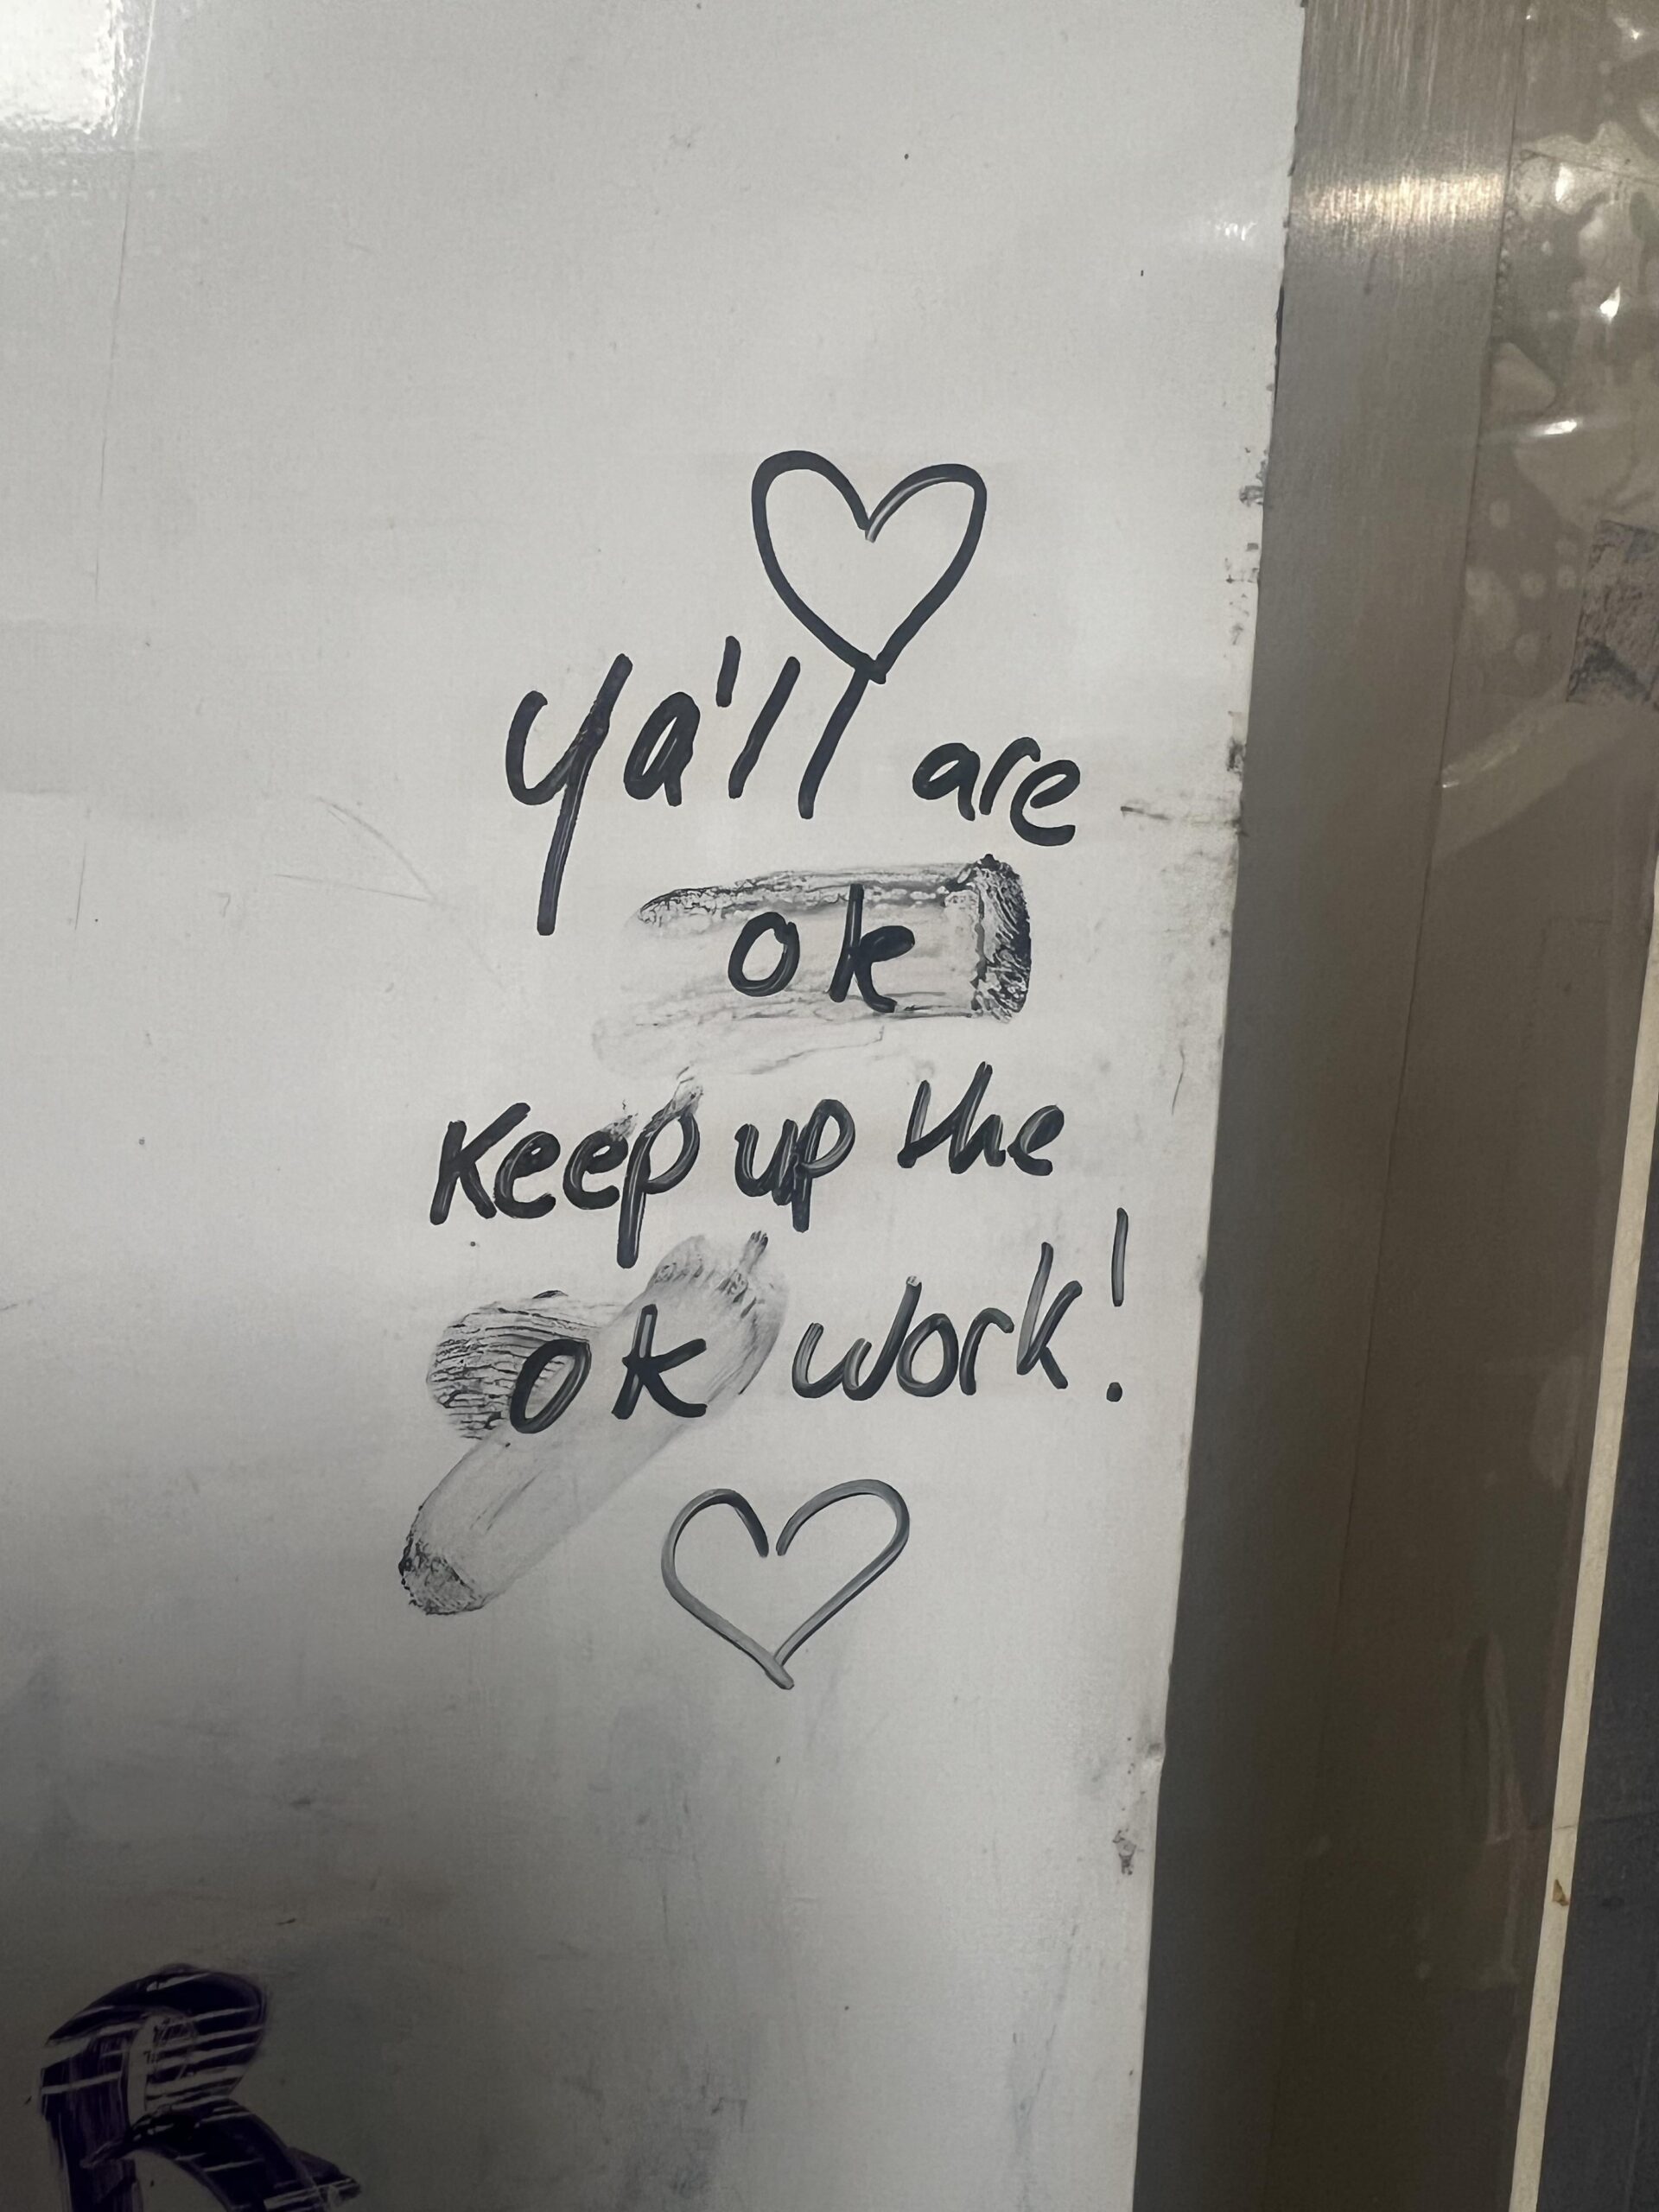 ya'll are
ok
Keep up the
ok work!
R